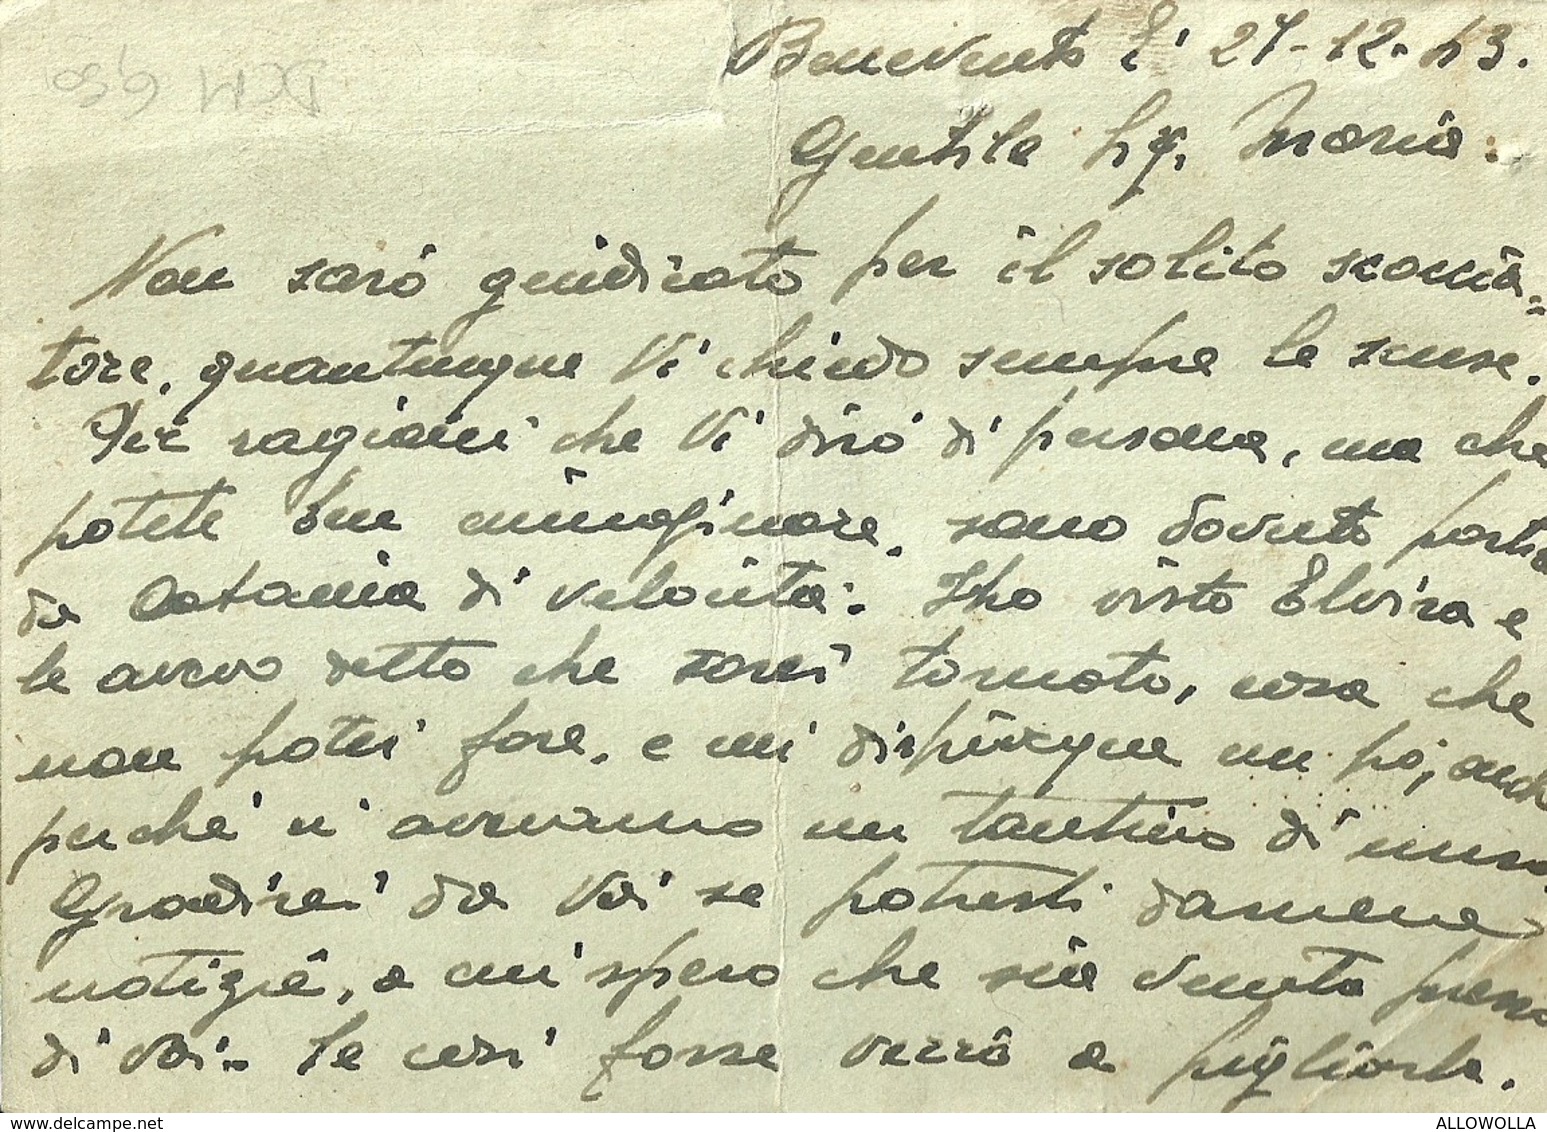 DCM 630
Benevento lì 27-12-43.
Gentile Sig. Maria:
Non sarò giudicato per il solito sconcia=
tore, quantunque Vi chiedo sempre le scuse.
Per ragioni che Vi dirò di persona, ma che
potete ben immaginare, sono dovuto partire
da Catania di velocità. Ho visto Elvira e
le avevo detto che sarei tornato, cosa che
non potei fare, e mi dispiacque un pò, anche
perché ci avevamo un tantino di
Gradirei da Voi se potresti darmene
notizie, e mi spero che sia venuta presso
di Voi. Se così fosse verrò a pigliarla.
delcampe.net
ALLOWOLLA